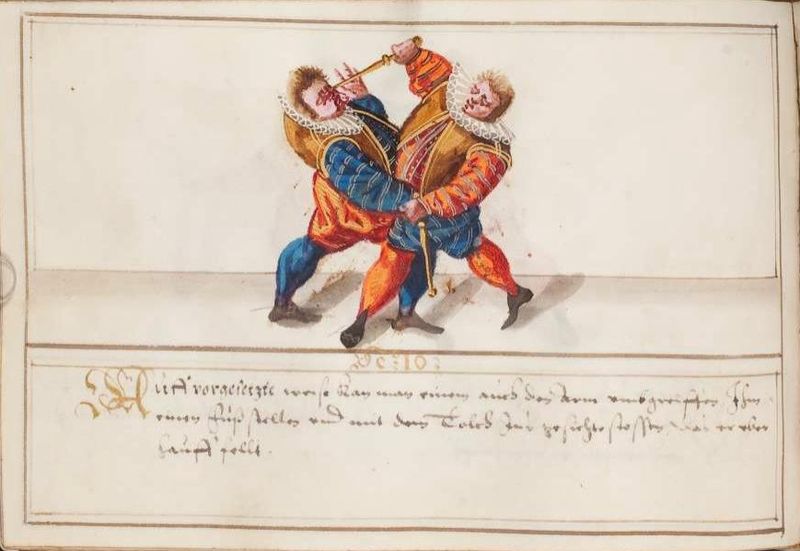 No: 10:
Auff vorgesetzte weise kan man einem auch den Arm umbgreiffen Ihm
einen fuß stellen und mit dem Tolch zur gesichte stossen, das er uber
hauff felt.